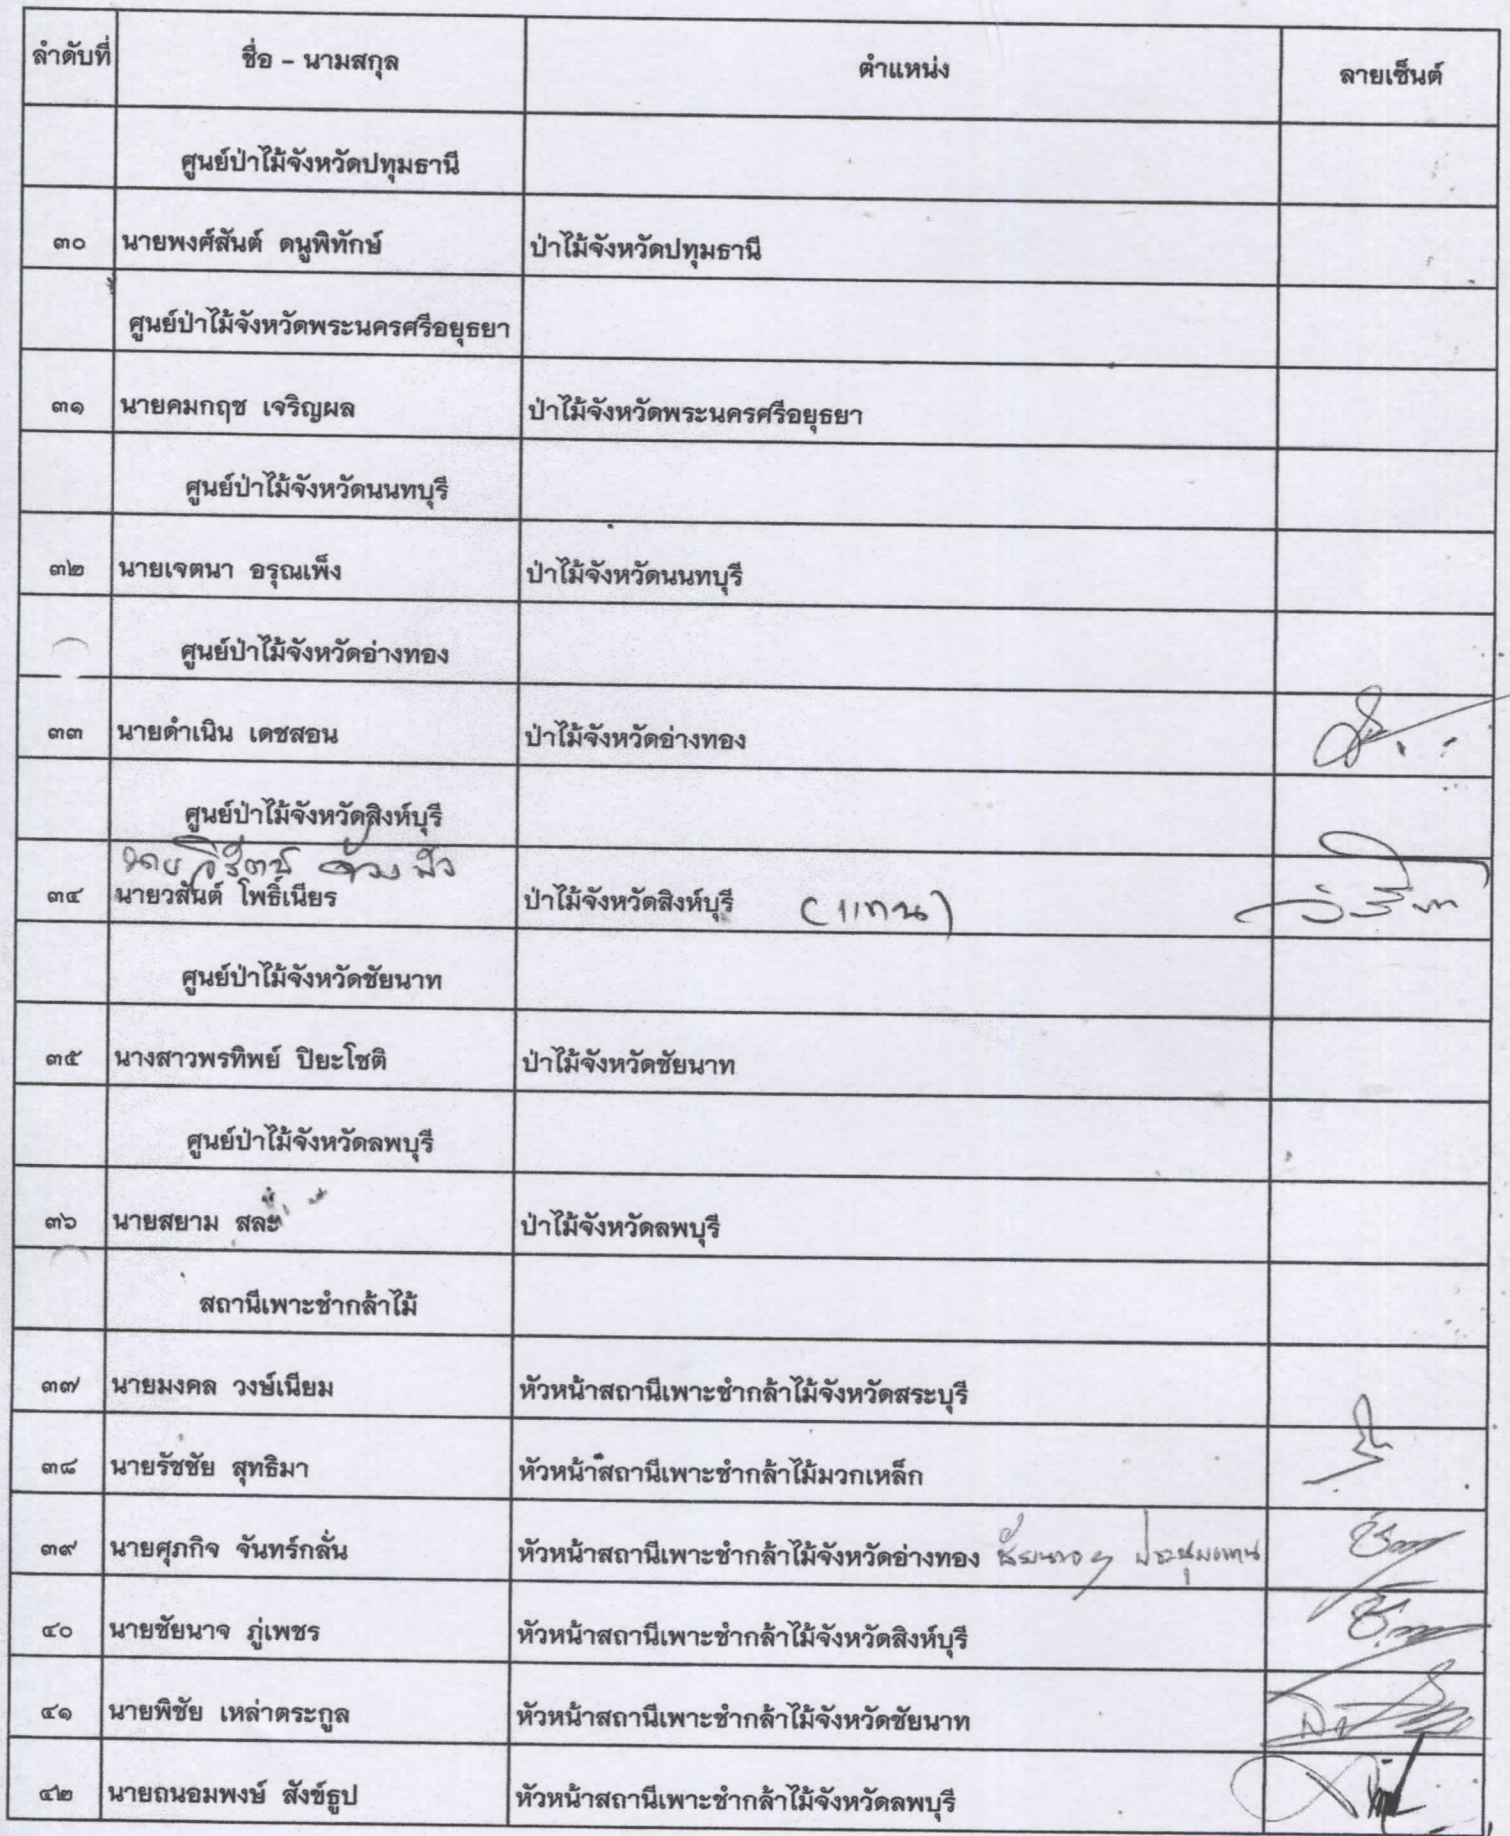 ลำดับที่ ชื่อ - นามสกุล ตำแหน่ง ลายเซ็นต์
ศูนย์ป่าไม้จังหวัดปทุมธานี
๓๐ นายพงศ์สันต์ ดนูพิทักษ์ ป่าไม้จังหวัดปทุมธานี
ศูนย์ป่าไม้จังหวัดพระนครศรีอยุธยา
๓๑ นายคมกฤช เจริญผล ป่าไม้จังหวัดพระนครศรีอยุธยา
ศูนย์ป่าไม้จังหวัดนนทบุรี
๓๒ นายเจตนา อรุณเพ็ง ป่าไม้จังหวัดนนทบุรี
ศูนย์ป่าไม้จังหวัดอ่างทอง
๓๓ นายดำเนิน เดชสอน ป่าไม้จังหวัดอ่างทอง
ศูนย์ป่าไม้จังหวัดสิงห์บุรี
นาย
๓๔ นายวสันต์ โพธิ์เนียร ป่าไม้จังหวัดสิงห์บุรี (แทน)
ศูนย์ป่าไม้จังหวัดชัยนาท
๓๕ นางสาวพรทิพย์ ปิยะโชติ ป่าไม้จังหวัดชัยนาท
ศูนย์ป่าไม้จังหวัดลพบุรี
๓๖ นายสยาม สละ ป่าไม้จังหวัดลพบุรี
สถานีเพาะชำกล้าไม้
๓๗ นายมงคล วงษ์เนียม หัวหน้าสถานีเพาะชำกล้าไม้จังหวัดสระบุรี
๓๘ นายรัชชัย สุทธิมา หัวหน้าสถานีเพาะชำกล้าไม้มวกเหล็ก
๓๙ นายศุภกิจ จันทร์กลั่น หัวหน้าสถานีเพาะชำกล้าไม้จังหวัดอ่างทอง ชัยนาจ ๆ ประชุมแทน
๔๐ นายชัยนาจ ภู่เพชร หัวหน้าสถานีเพาะชำกล้าไม้จังหวัดสิงห์บุรี
๔๑ นายพิชัย เหล่าตระกูล หัวหน้าสถานีเพาะชำกล้าไม้จังหวัดชัยนาท
๔๒ นายถนอมพงษ์ สังข์ธูป หัวหน้าสถานีเพาะชำกล้าไม้จังหวัดลพบุรี